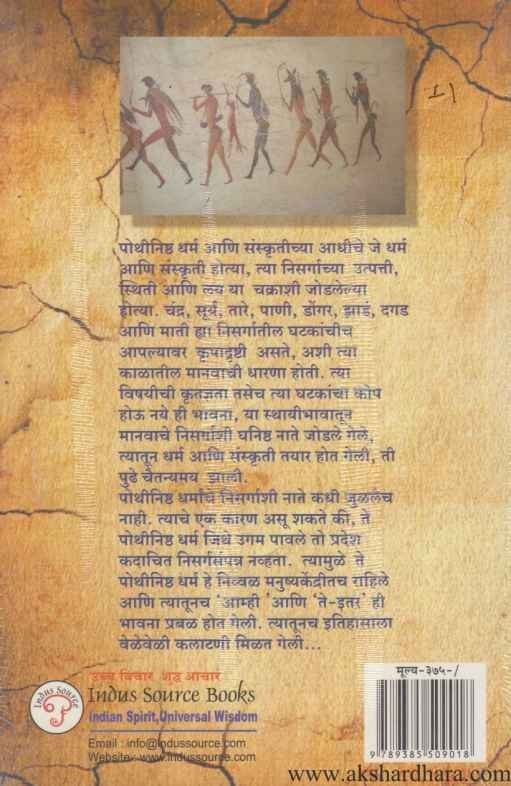 पोथीनिष्ठ धर्म आणि संस्कृतीच्या आधीचे जे धर्म
आणि संस्कृती होत्या, त्या निसर्गाच्या उत्पत्ती,
स्थिती आणि लय या चक्राशी जोडलेल्या
होत्या. चंद्र, सूर्य, तारे, पाणी, डोंगर, झाडं, दगड
आणि माती ह्या निसर्गातील घटकांचीच
आपल्यावर कृपादृष्टी असते, अशी त्या
काळातील मानवाची धारणा होती. त्या
विषयीची कृतज्ञता तसेच त्या घटकांचा कोप
होऊ नये ही भावना, या स्थायीभावातून
मानवाचे निसर्गाशी घनिष्ठ नाते जोडले गेले,
त्यातून धर्म आणि संस्कृती तयार होत गेली, ती
पुढे चैतन्यमय झाली.
पोथीनिष्ठ धर्माचे निसर्गाशी नाते कधी जुळलंच
नाही. त्याचे एक कारण असू शकते की, ते
पोथीनिष्ठ धर्म जिथे उगम पावले तो प्रदेश
कदाचित निसर्गसंपन्न नव्हता. त्यामुळे ते
पोथीनिष्ठ धर्म हे निव्वळ मनुष्यकेंद्रीतच राहिले
आणि त्यातूनच 'आम्ही 'आणि 'ते-इतर' ही
भावना प्रबळ होत गेली. त्यातूनच इतिहासाला
वेळेवेळी कलाटणी मिळत गेली...
उच्च विचार शुद्ध आचार
Indus Source
Indus Source Books
Indian Spirit,Universal Wisdom
Email : info@indussource.com
Website : www.indussource.com
मूल्य-३७५-/
9 789385 509018
www.akshardhara.com